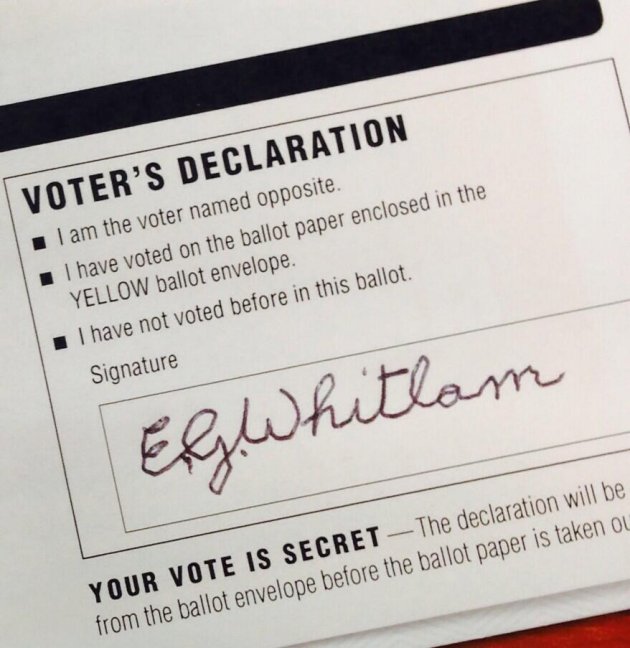 VOTER'S DECLARATION
■ I am the voter named opposite.
■ I have voted on the ballot paper enclosed in the
YELLOW ballot envelope.
■ I have not voted before in this ballot.
Signature
E.G.Whitlam
YOUR VOTE IS SECRET — The declaration will be
from the ballot envelope before the ballot paper is taken